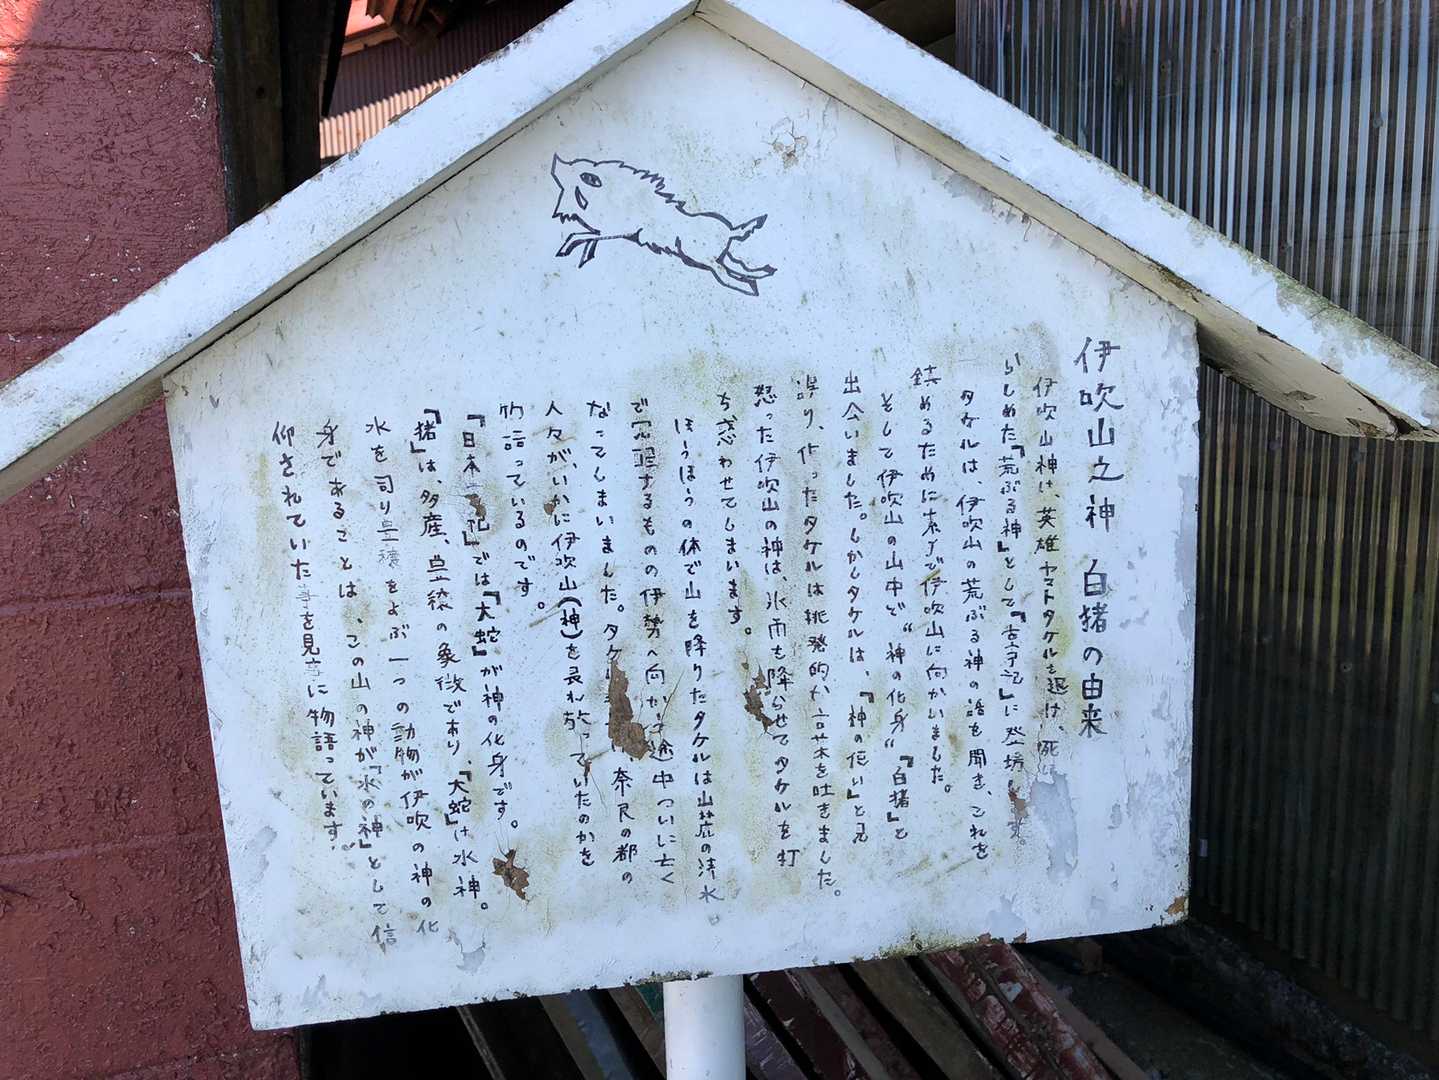 伊吹山之神 白猪の由来
伊吹山神は、英雄ヤマトタケルを退け、死に
らしめた『荒ぶる神』として『古事記』に登場
タケルは、伊吹山の荒ぶる神の話を聞き、これを
鎮めるために素手で伊吹山に向かいました。
そして伊吹山の山中で“神の化身“『白猪』と
出会いました。しかしタケルは、『神の使い』と見
誤り、侮ったタケルは挑発的な言葉を吐きました。
怒った伊吹山の神は、氷雨を降らせてタケルを打
ち惑わせてしまいます。
ほうほうの体で山を降りたタケルは山麓の清水
で回復するものの伊勢へ向かう途中ついに亡く
なってしまいました。 奈良の都の
人々がいかに伊吹山(神)を畏れ敬っていたのかを
物語っているのです。
『日本 紀』では『大蛇』が神の化身です。
『猪』は、多産、豊穣の象徴であり、『大蛇』は水神。
水を司り豊穣をよぶ一つの動物が伊吹の神の化
身であることは、この山の神が『水の神』として信
仰されていた事を見事に物語っています。